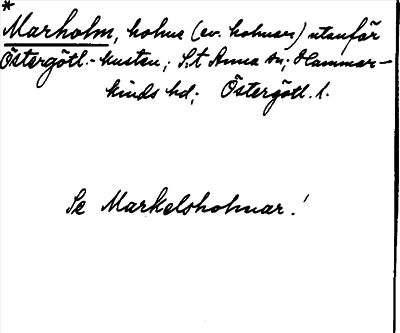 *
Marholm, holme (ev. holmar) utanför
Östergötl.-kusten; S:t Anna sn; Hammar-
kinds hd; Östergötl. l.
Se Markelsholmar!